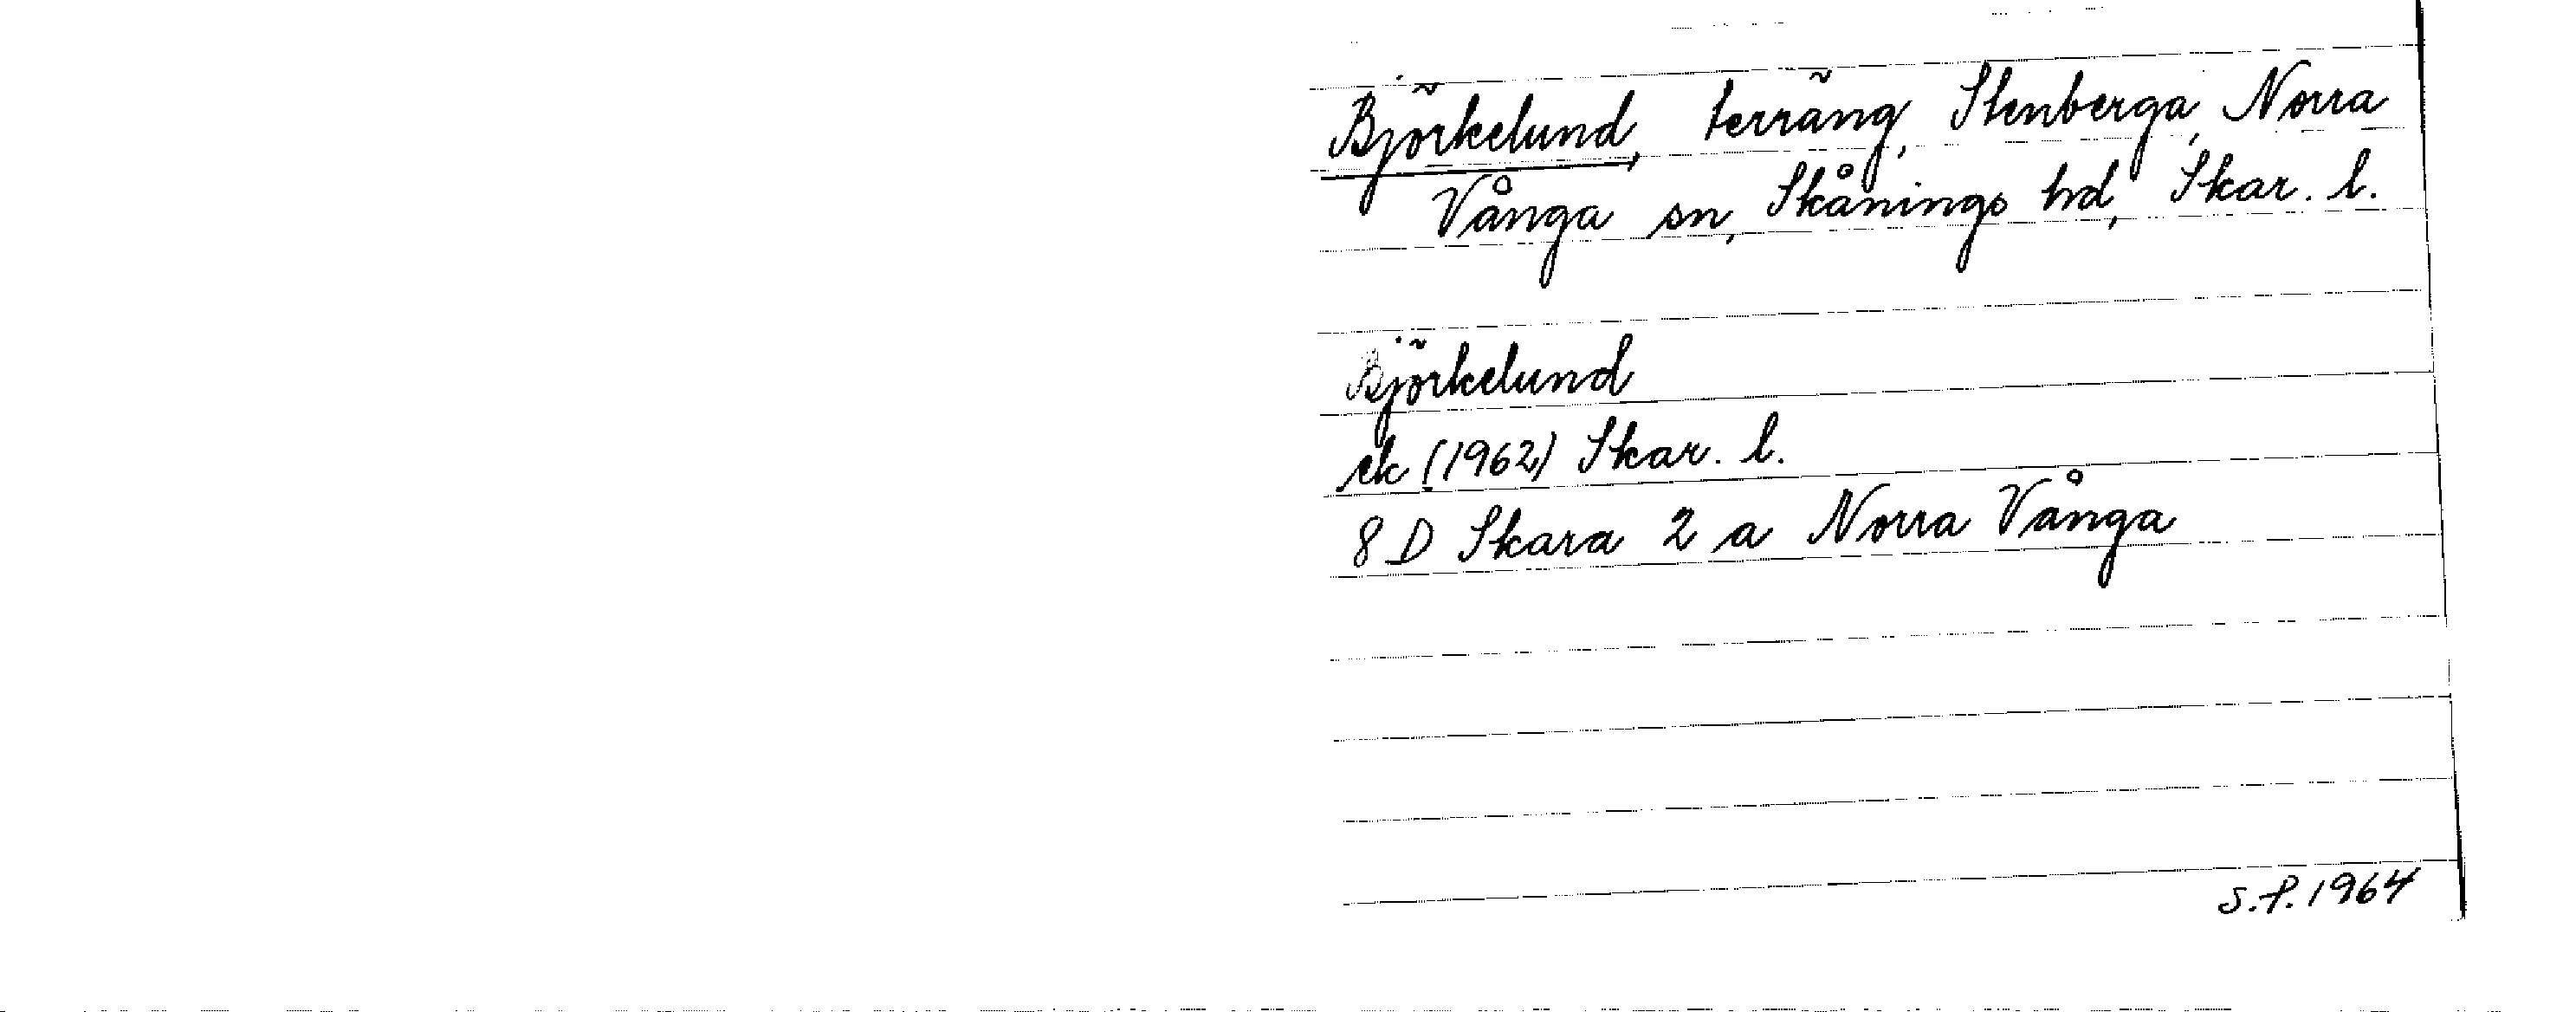 Björkelund, terräng, Stenberga, Norra
Vånga sn, Skånings hd, Skar. l.
Björkelund
ek (1962) Skar. l.
8 D Skara 2 a Norra Vånga
S.P. 1964